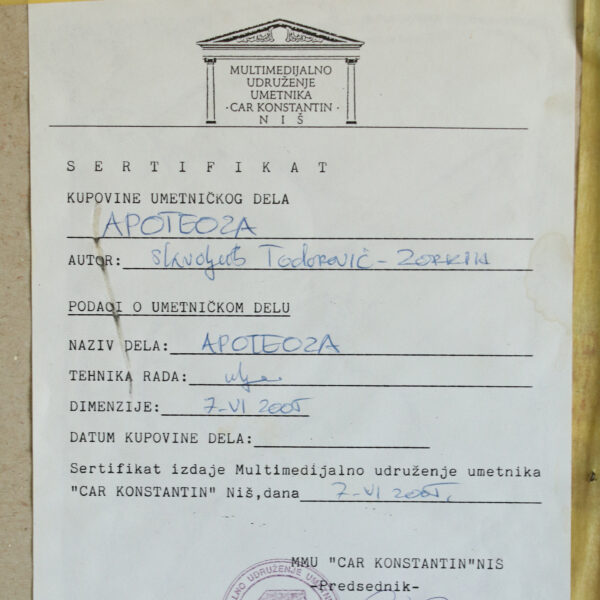 MULTIMEDIJALNO
UDRUŽENJE
UMETNIKA
·CAR KONSTANTIN·
N I Š
S E R T I F I K A T
KUPOVINE UMETNIČKOG DELA
APOTEOZA
AUTOR: Slavoljub Todorović - ZORKIN
PODACI O UMETNIČKOM DELU
NAZIV DELA: APOTEOZA
TEHNIKA RADA: ulje
DIMENZIJE: 7-VI 2005
DATUM KUPOVINE DELA:
Sertifikat izdaje Multimedijalno udruženje umetnika
"CAR KONSTANTIN" Niš,dana 7-VI 2005.
MMU "CAR KONSTANTIN"NIS
-Predsednik-
UDRUŽENJE